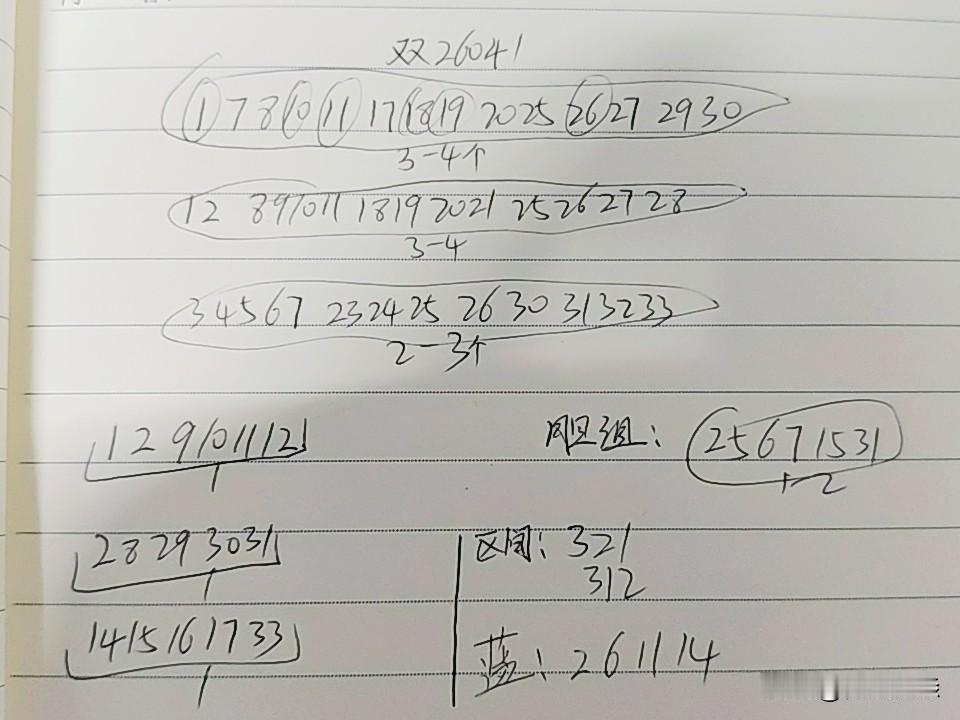 双26041
1 7 8 10 11 17 18 19 20 25 26 27 29 30
3-4个
1 2 8 9 10 11 18 19 20 21 25 26 27 28
3-4
3 4 5 6 7 23 24 25 26 30 31 32 33
2-3个
1 2 9 10 11 12
1
胆组: 2 5 6 7 15 31
1-2
28 29 30 31
1
区间: 321
312
14 15 16 17 33
1
蓝: 2 6 11 14